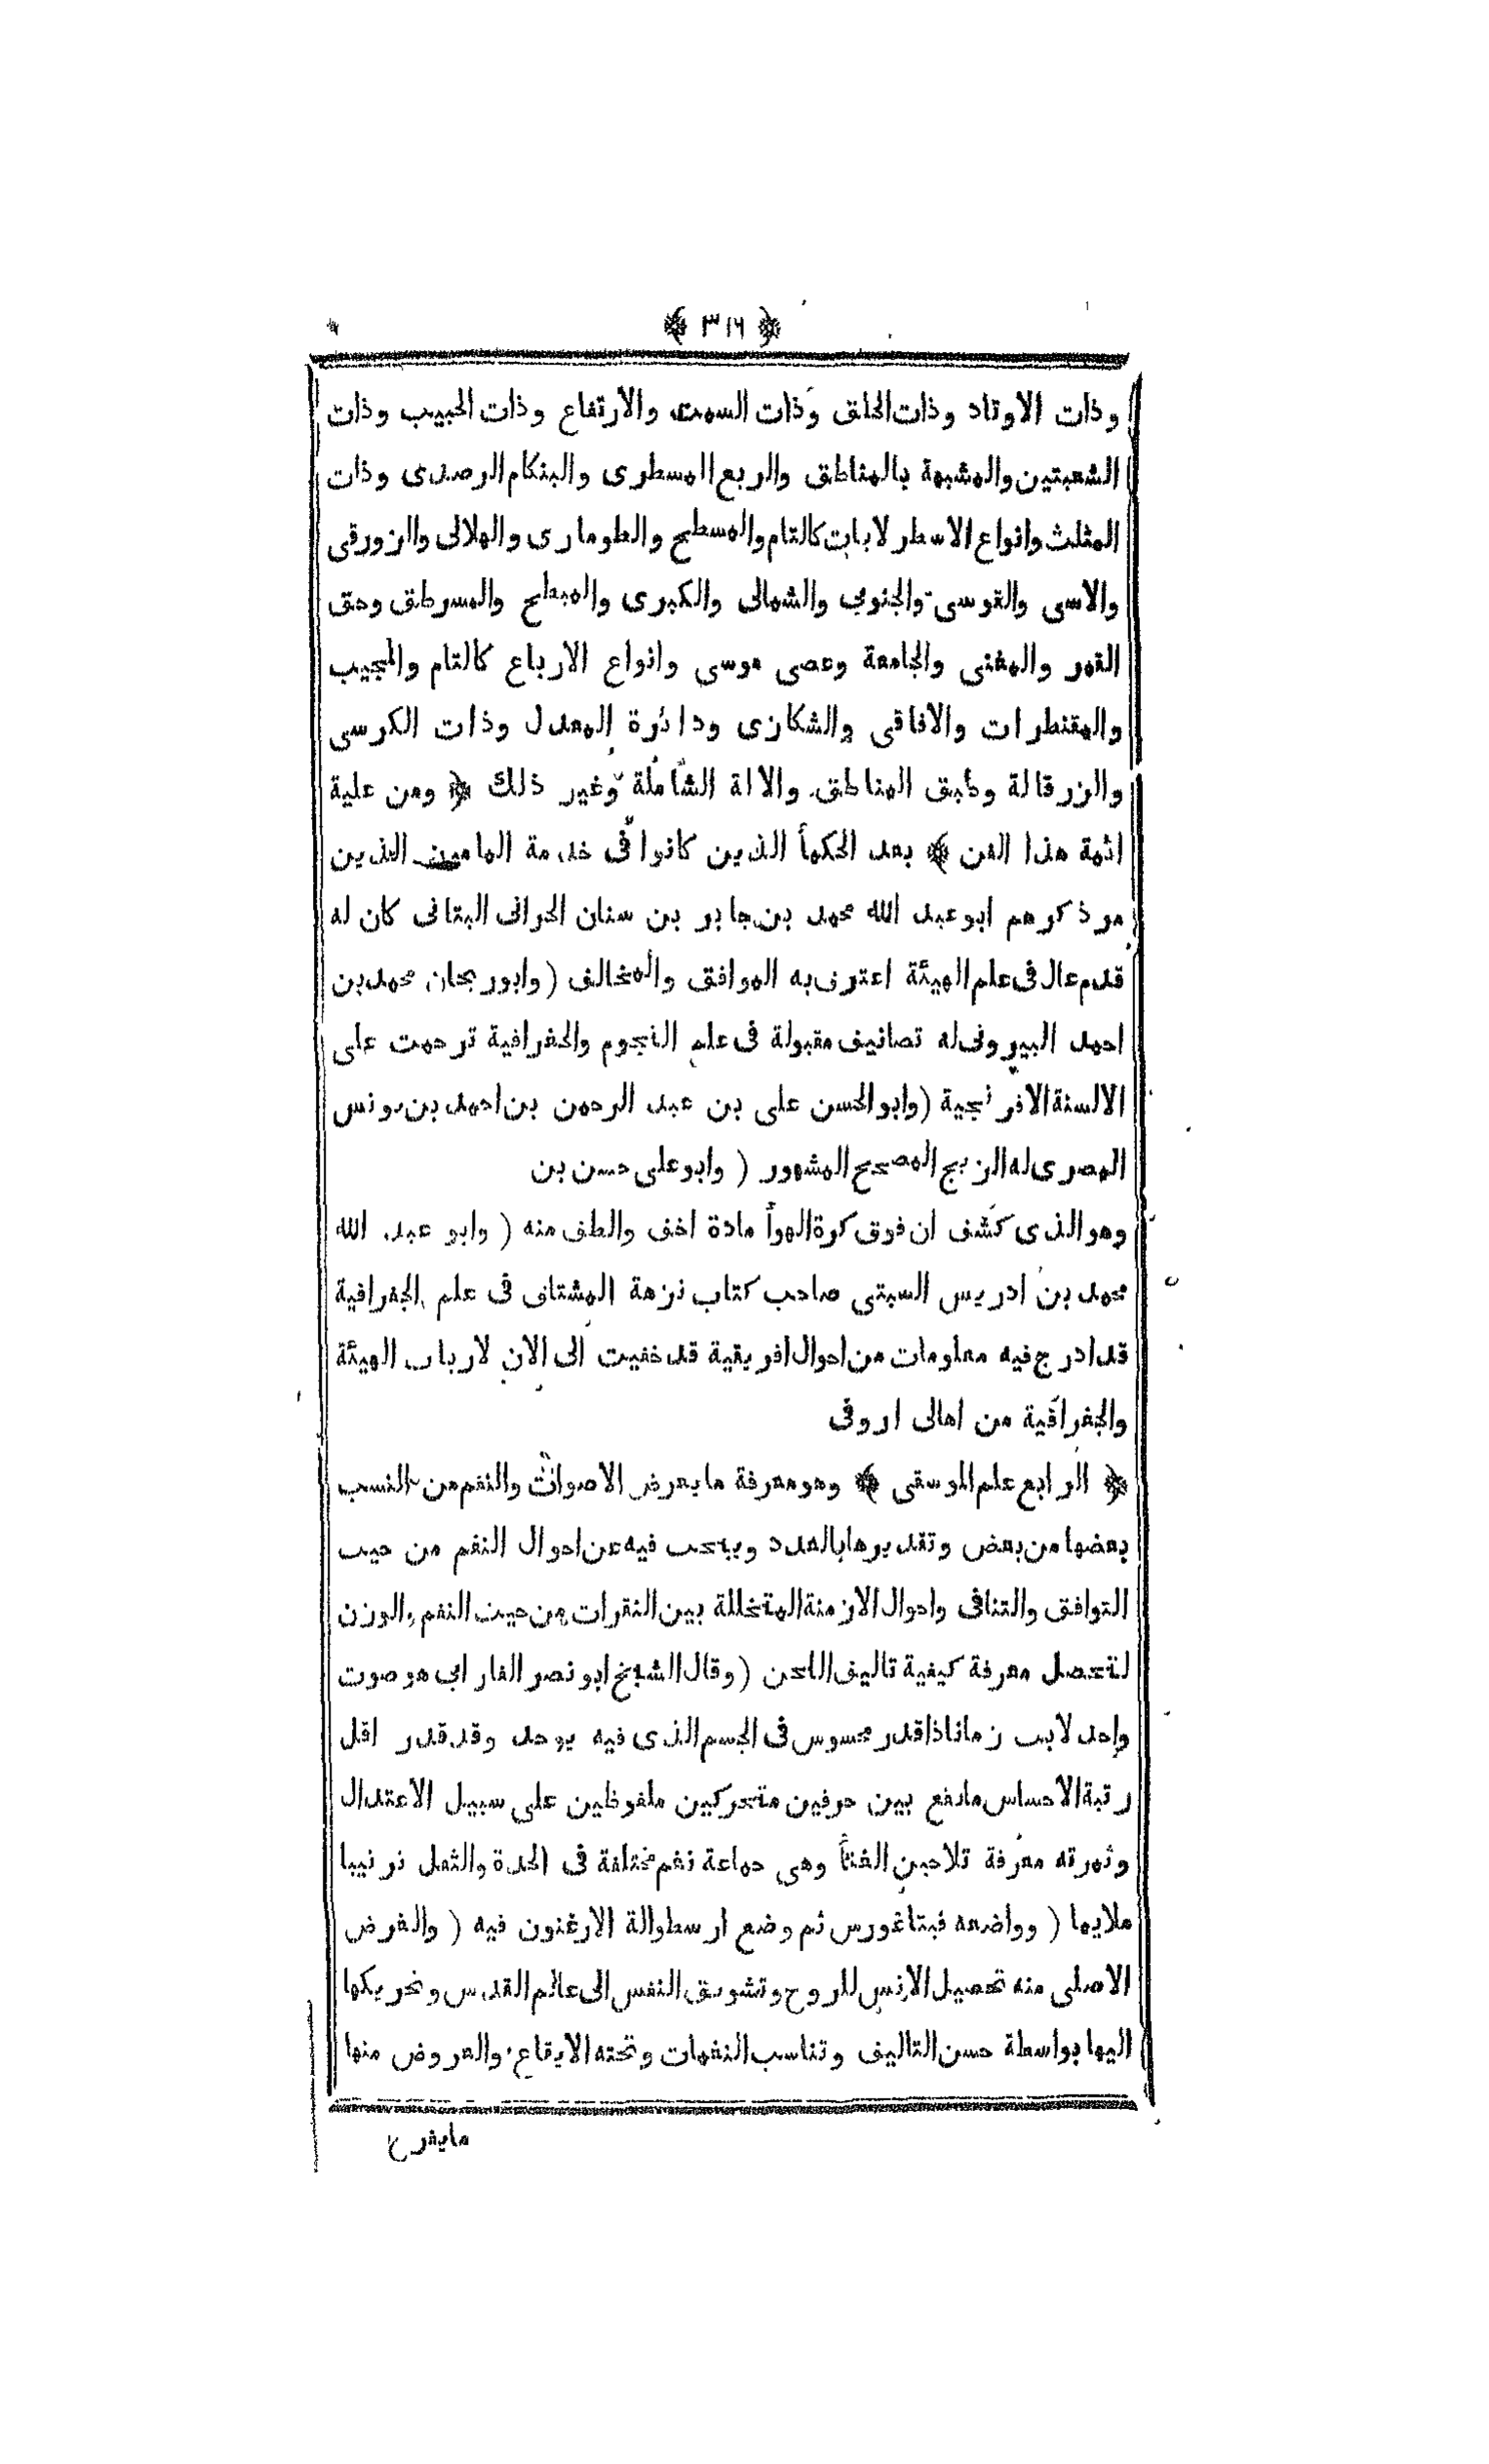 ﴿ ٣١٦ ﴾
وذات الاوتاد وذات الحلق وذات السمت والارتفاع وذات الجيب وذات
الشعبتين والمشبهة بالمناطق والربع المسطرى والبنكام الرصدى وذات
المثلث وانواع الاسطرلابات كالتام والمسطح والطومارى والهلالى والزورقى
والاسى والقوسى والجنوبى والشمالى والكبرى والمبطح والمسرطق وحق
القمر والمغنى والجامعة وعصى موسى وانواع الارباع كالتام والمجيب
والمقنطرات والافاقى والشكازى ودائرة المعدل وذات الكرسى
والزرقالة وطبق المناطق والالة الشاملة وغير ذلك ﴿ ومن علية
ائمة هذا الفن ﴾ بعد الحكمأ الذين كانوا فى خدمة المامين الذين
مر ذكرهم ابو عبد الله محمد بن جابر بن سنان الحرانى البتانى كان له
قدم عال فى علم الهيئة اعترف به الموافق والمخالف (وابوريحان محمد بن
احمد البيرونى له تصانيف مقبولة فى علم النجوم والجغرافية ترجمت على
الالسنة الافرنجية (وابو الحسن على بن عبد الرحمن بن احمد بن يونس
المصرى له الزيج المصحح المشهور ( وابوعلى حسن بن
وهو الذى كشف ان فوق كرة الهوأ مادة اخف والطف منه ( وابو عبد الله
محمد بن ادريس السبتى صاحب كتاب نزهة المشتاق فى علم الجغرافية
قد ادرج فيه معلومات من احوال افريقية قد خفيت الى الان لارباب الهيئة
والجغرافية من اهالى اروفى
﴿ الرابع علم الموسقى ﴾ وهو معرفة ما يعرض الاصوات والنغم من النسب
بعضها من بعض وتقديرها بالعدد ويبحث فيه عن احوال النغم من حيث
التوافق والتنافى واحوال الازمنة المتخللة بين النقرات من حيث النغم والوزن
لتحصل معرفة كيفية تاليف اللحن (وقال الشيخ ابو نصر الفارابى هو صوت
واحد لابث زمانا ذا قدر محسوس فى الجسم الذى فيه يوجد وقد قدر اقل
رتبة الاحساس ما دفع بين حرفين متحركين ملفوظين على سبيل الاعتدال
وثمرته معرفة تلاحين الغنأ وهى جماعة نغم مختلفة فى الحدة والثقل ترتيبا
ملايما ( وواضعه فيتاغورس ثم وضع ارسطوالة الارغنون فيه ( والغرض
الاصلى منه تحصيل الانس للروح وتشويق النفس الى عالم القدس وتحريكها
اليها بواسطة حسن التاليف وتناسب النغمات وتحته الايقاع والعروض منها
مايفرع